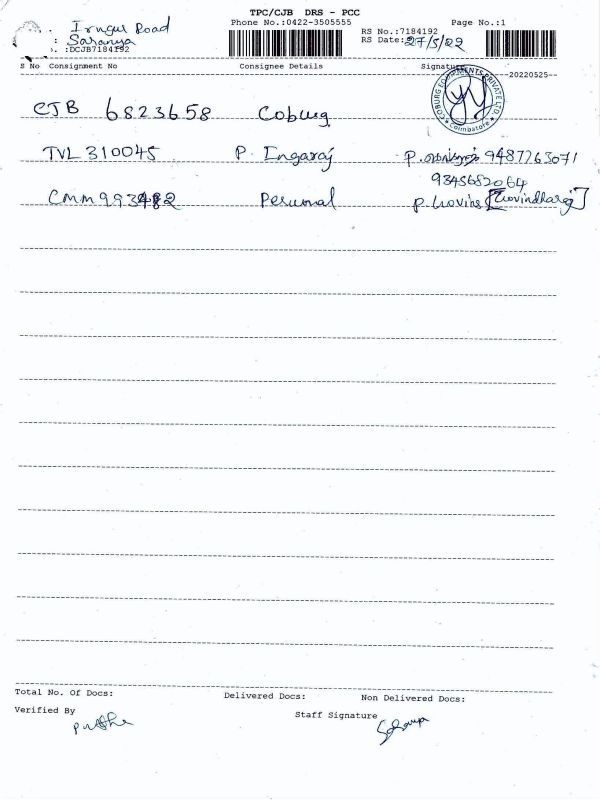 TPC/CJB DRS - PCC
Irugur Road
Phone No.:0422-3505555 Page No.:1
: Saranya
RS No.:7184192
. :DCJB7184192
RS Date: 27/5/22
S No Consignment No Consignee Details Signature
--20220525--
COBURG EQUIPMENTS PRIVATE LTD
Coimbatore
CJB 6823658 Coburg
TVL 310045 P. Ingaraj P. 9487263071
9345682064
CMM 993482 Personal P. Govind [Govindharaj]
Total No. Of Docs: Delivered Docs: Non Delivered Docs:
Verified By
Staff Signature
Saranya